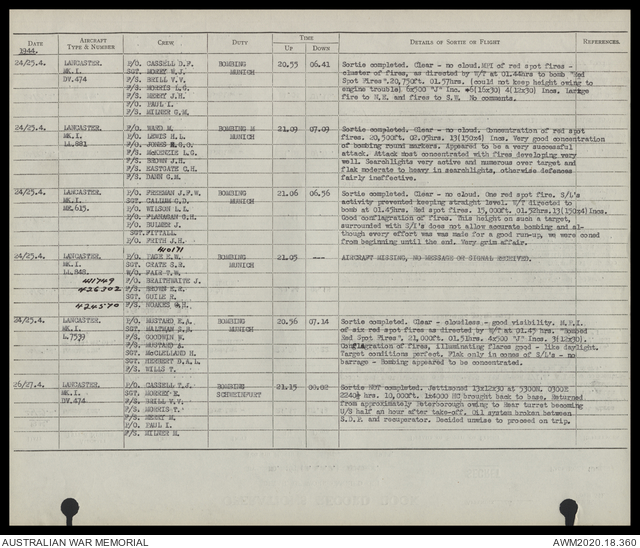 DATE 1944. AIRCRAFT TYPE & NUMBER CREW DUTY TIME UP DOWN DETAILS OF SORTIE OR FLIGHT REFERENCES.
24/25.4. LANCASTER. P/O. CASSELL D.F. BOMBING 20.55 06.41 Sortie completed. Clear - no cloud. MPI of red spot fires -
MK.I. SGT. MOREY W.J. MUNICH cluster of fires, as directed by W/T at 01.44hrs to bomb "Red
DV.474 F/S. BRILL V.V. Spot Fires". 20,750ft. 01.57hrs. (could not keep height owing to
F/S. MORRIS L.G. engine trouble) 6x500 "J" Inc. 6(16x30) 4(12x30) Incs. Large
F/S. BERRY J.H. fire to N.E. and fires to S.E. No comments.
P/O. PAUL I.
F/S. MILNER G.M.
24/25.4. LANCASTER. P/O. WARD M. BOMBING M 21.09 07.09 Sortie completed. Clear - no cloud. Concentration of red spot
MK.I. P/O. LEWIS H.L. MUNICH fires. 20,500ft. 02.05hrs. 13(150x4) Incs. Very good concentration
LL.881 P/O. JONES R.G.O. of bombing round markers. Appeared to be a very successful
F/S. McKENZIE L.G. attack. Attack most concentrated with fires developing very
F/S. BROWN J.H. well. Searchlights very active and numerous over target and
F/S. EASTGATE C.H. flak moderate to heavy in searchlights, otherwise defences
F/S. DANN G.M. fairly ineffective.
24/25.4. LANCASTER. P/O. FREEMAN J.F.W. BOMBING 21.06 06.56 Sortie completed. Clear - no cloud. One red spot fire. S/L's
MK.I. SGT. CALLUM G.D. MUNICH activity prevented keeping straight level. W/T directed to
ME.615. P/O. WILSON L.I. bomb at 01.45hrs. Red spot fires. 15,000ft. 01.52hrs. 13(150x4) Incs.
P/O. FLANAGAN G.H. Good conflagration of fires. This height on such a target,
P/O. BULMER J. surrounded with S/L's does not allow accurate bombing and al-
SGT. PITTALL though every effort was was made for a good run-up, we were coned
P/O. FRITH J.H. from beginning until the end. Very grim affair.
410171
24/25.4. LANCASTER. F/O. PAGE E.W. BOMBING 21.05 --- AIRCRAFT MISSING, NO MESSAGE OR SIGNAL RECEIVED.
MK.I. SGT. CRATE S.R. MUNICH
LL.848. W/O. FAIR T.W.
411749 F/O. BRAITHWAITE J.
426302 F/S. BROWN E.R.
SGT. GUILE R.
424570 F/S. NOAKES G.H.
24/25.4. LANCASTER. P/O. MUSTARD K.A. BOMBING 20.56 07.14 Sortie completed. Clear - cloudless - good visibility. M.P.I.
MK.I. SGT. WALTHAM S.R. MUNICH of six red spot fires as directed by W/T at 01.45 hrs. "Bombed
L.7539 F/S. GOODWIN N. Red Spot Fires", 21,000ft. 01.51hrs. 4x500 "J" Incs. 3(12x30).
F/S. MUSTARD A. Conflagration of fires, illuminating flares good - like daylight.
SGT. McCLELLAND H. Target conditions perfect. Flak only in cones of S/L's - no
SGT. REDBERT D.A.L. barrage - Bombing appeared to be concentrated.
F/S. WILLS T.
26/27.4. LANCASTER. P/O. CASSELL T.J. BOMBING 21.15 00.02 Sortie NOT completed. Jettisoned 13x12x30 at 5300N. 0300E
MK.I. SGT. MORREY E. SCHWEINFURT 2240½ hrs. 10,000ft. 1x4000 HC brought back to base. Returned
DV.474 F/S. BRILL V.V. from approximately Peterborough owing to Rear turret becoming
F/S. MORRIS T. U/S half an hour after take-off. Oil system broken between
F/S. BERRY R. S.D.P. and recuperator. Decided unwise to proceed on trip.
P/O. PAUL I.
F/S. MILNER M.
AUSTRALIAN WAR MEMORIAL AWM2020.18.360